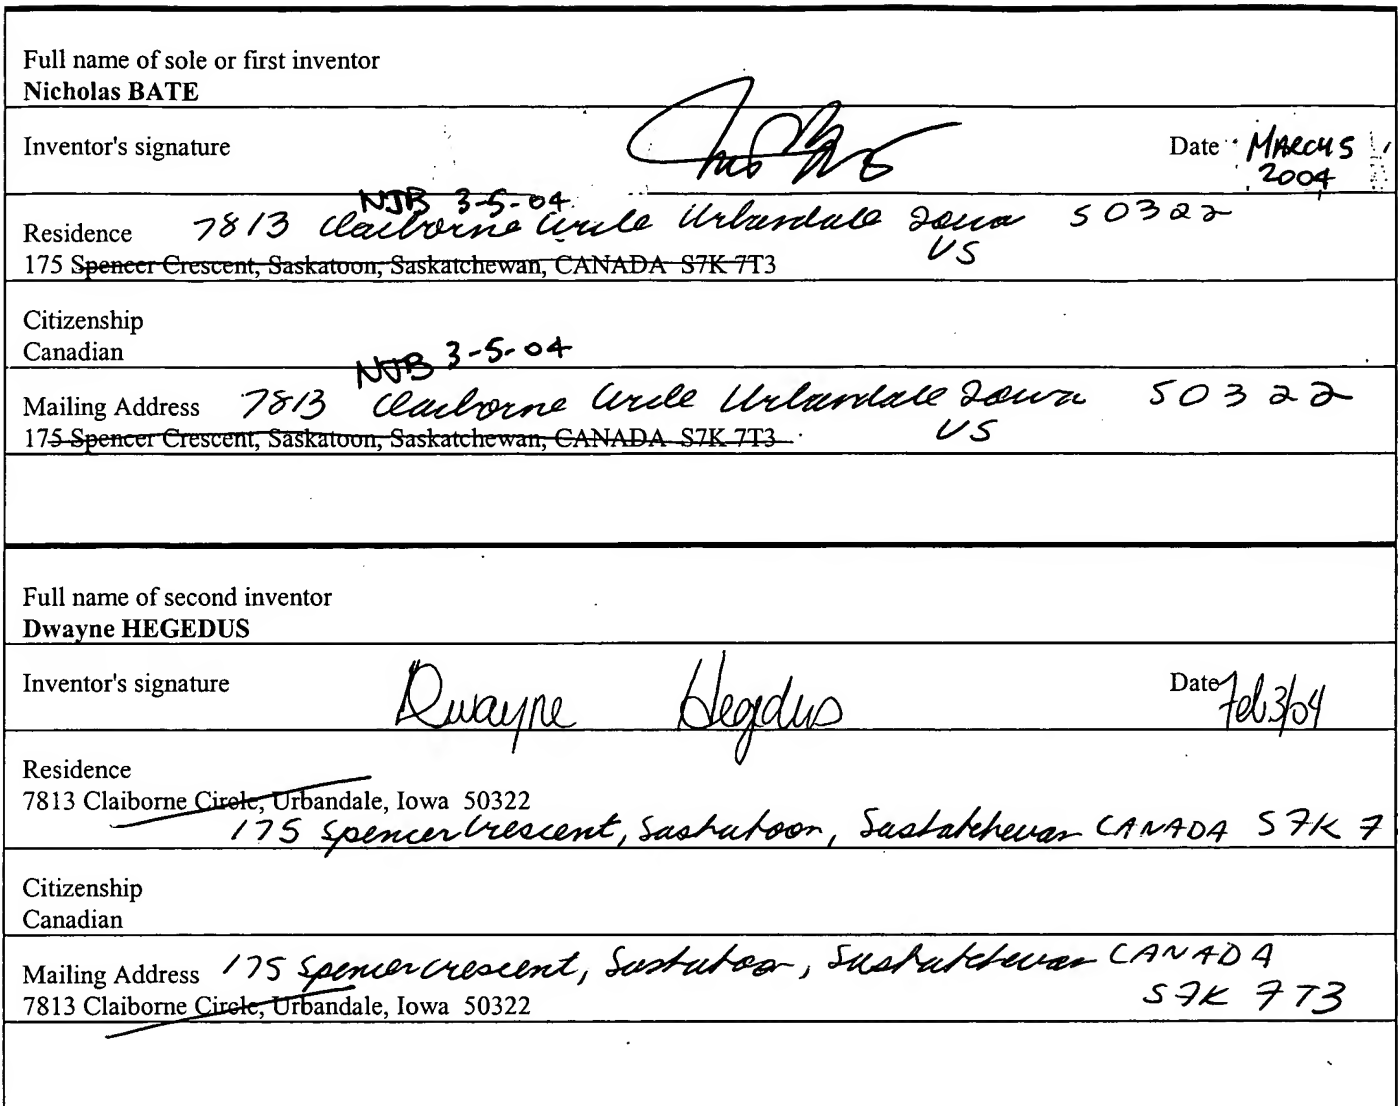 Full name of sole or first inventor
Nicholas BATE
Inventor's signature
Date MARCH 5
2004
NJB 3-5-04
Residence 7813 Claiborne Circle Urbandale Iowa 50322
US
175 Spencer Crescent, Saskatoon, Saskatchewan, CANADA S7K 7T3
Citizenship
Canadian
NJB 3-5-04
Mailing Address 7813 Claiborne Circle Urbandale Iowa 50322
US
175 Spencer Crescent, Saskatoon, Saskatchewan, CANADA S7K 7T3
Full name of second inventor
Dwayne HEGEDUS
Inventor's signature Dwayne Hegedus Date Feb 3/04
Residence
7813 Claiborne Circle, Urbandale, Iowa 50322
175 Spencer Crescent, Saskatoon, Saskatchewan CANADA S7K 7
Citizenship
Canadian
Mailing Address 175 Spencer crescent, Saskatoon, Saskatchewan CANADA
S7K 7T3
7813 Claiborne Circle, Urbandale, Iowa 50322